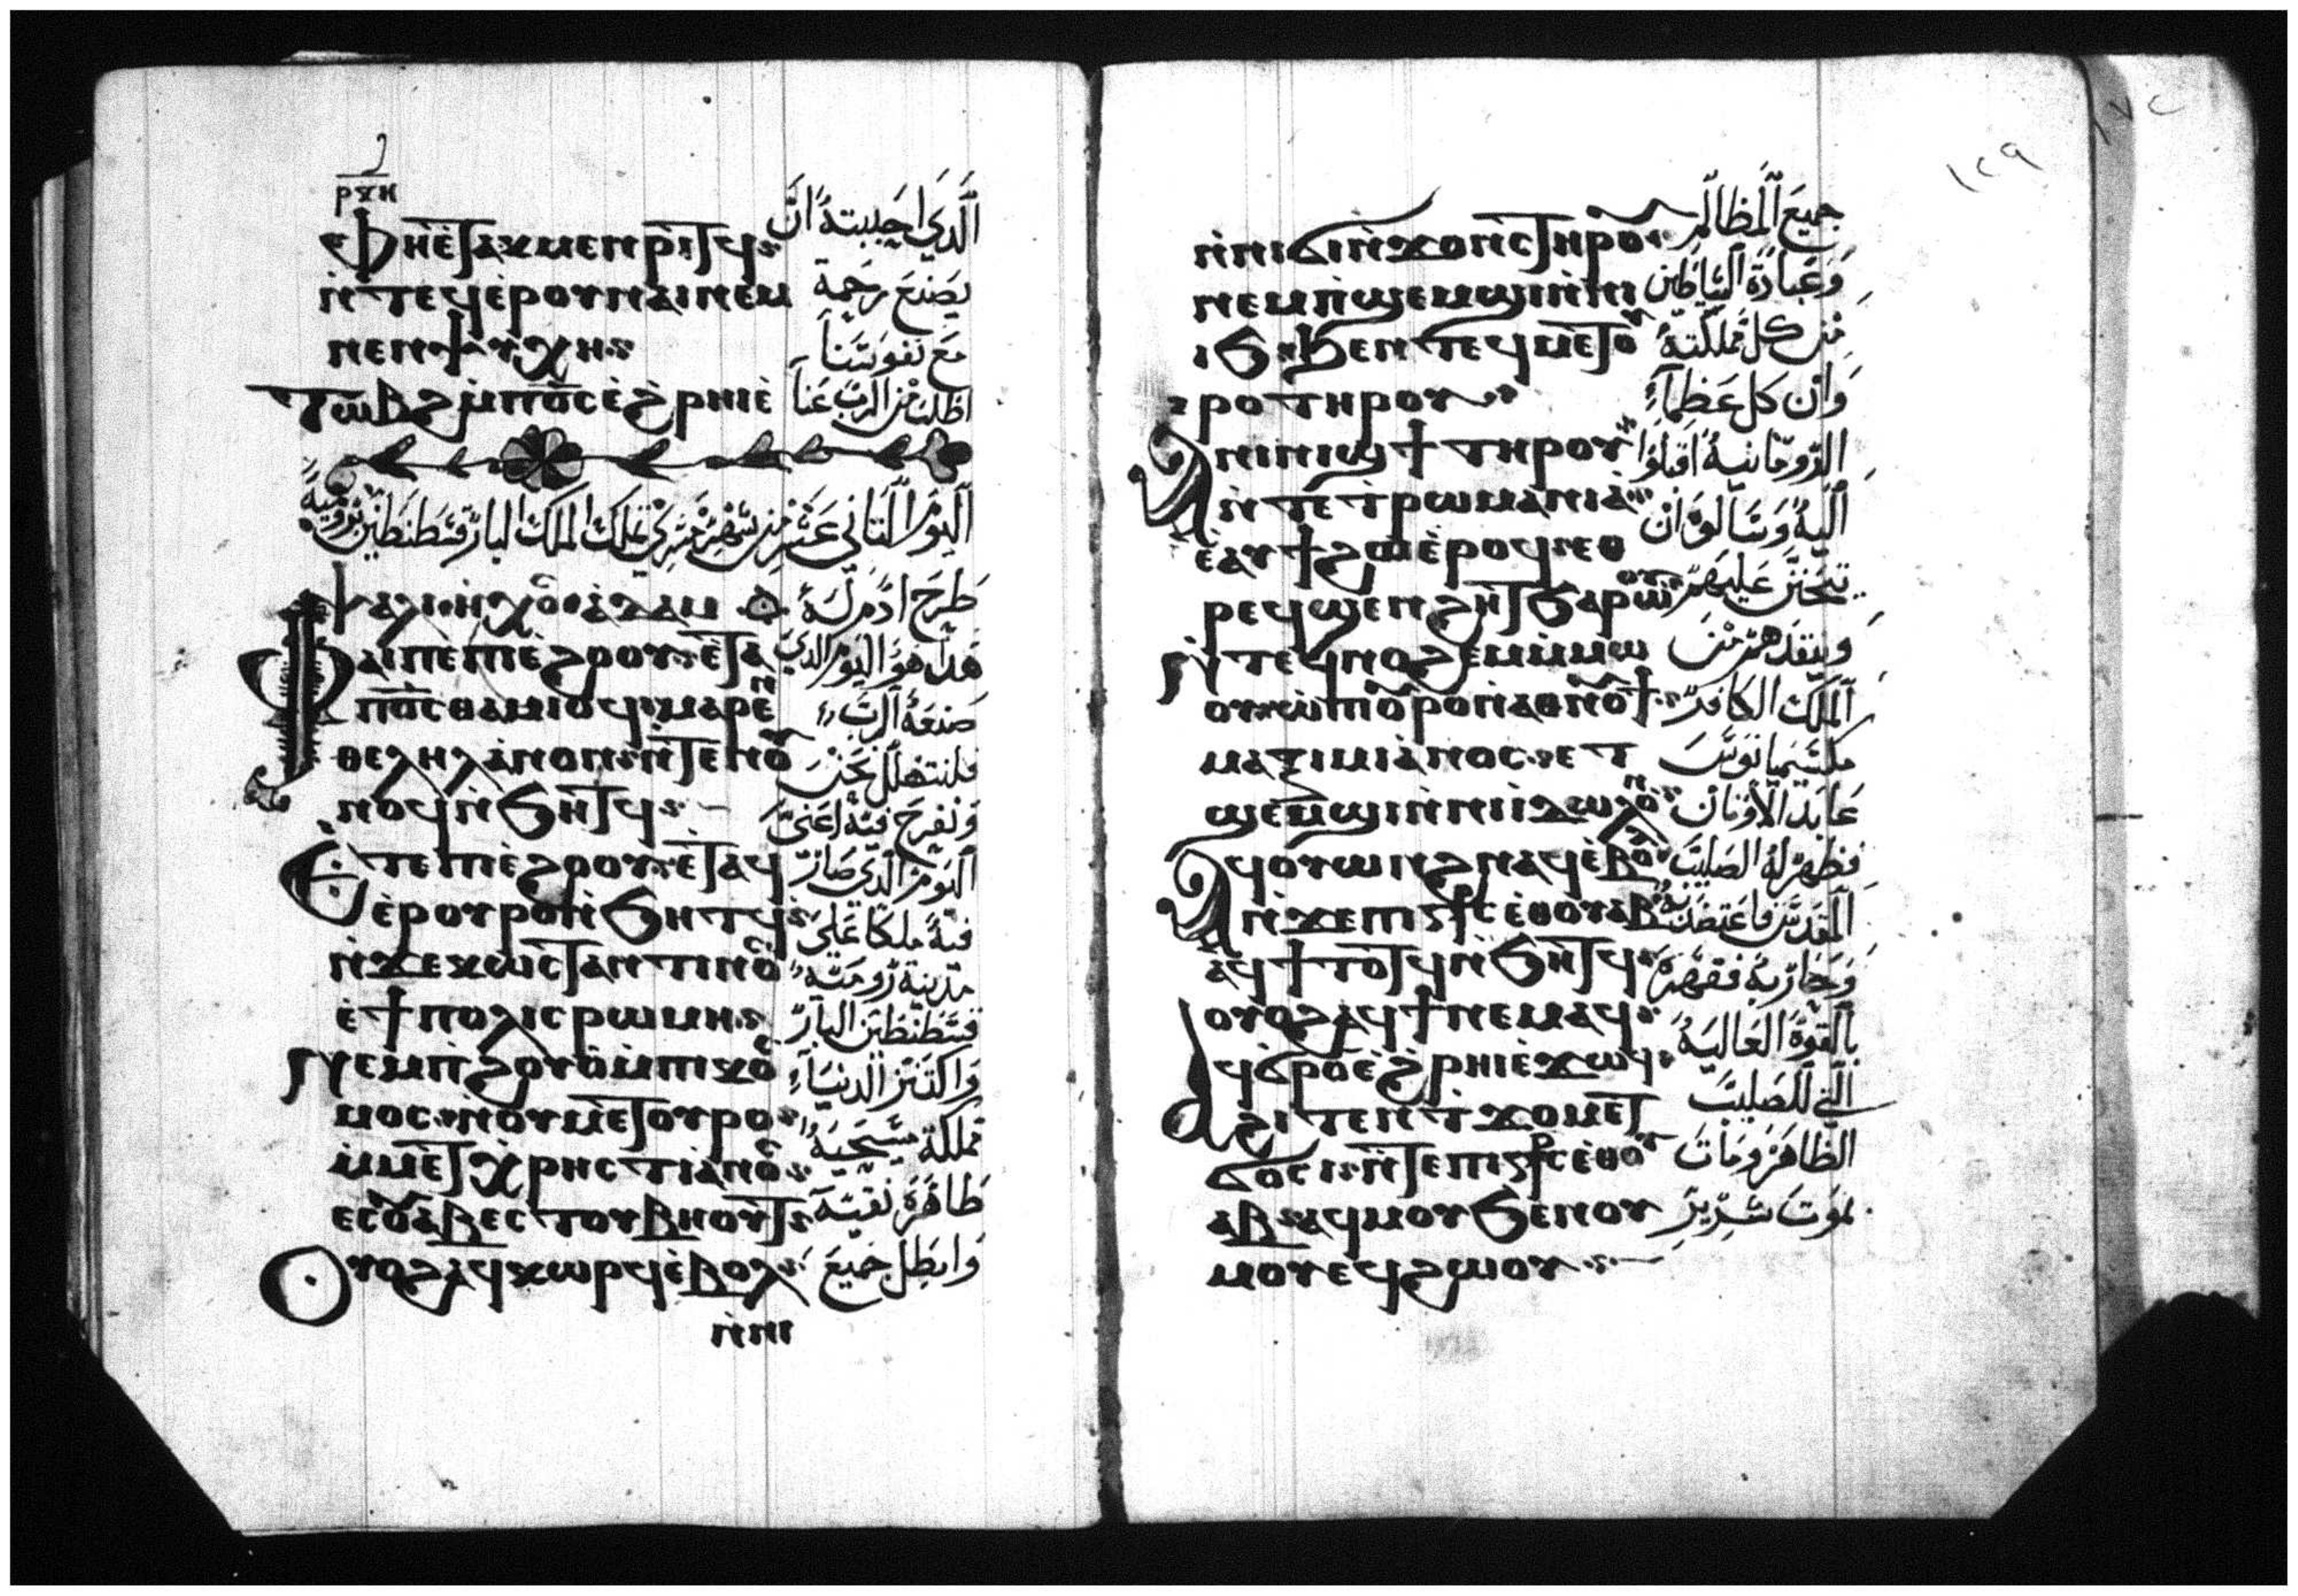 ⲣⲝⲏ
ⲫⲏⲉⲧⲁⲕⲙⲉⲛⲣⲓⲧϥ الَّدي احَببتهُ انَّ
ⲛ̀ⲧⲉϥⲉⲣⲟⲩⲛⲁⲓⲛⲉⲙ يَصْنعَ رَحمة
ⲛⲉⲛⲯⲩⲭⲏ مَع نفوسَنا
ⲧⲱⲃϩ ⲙ̀ⲡⲟ̅ⲥ̅ ⲉ̀ϩⲣⲏⲓⲉ̀ اطلبْ مْن الربّ عَنا
اليَومْ التَاني عَشرْ مِن شهْرْ تملك الملكْ البار قسَطنطَين
ⲯⲁⲗⲓ ⲛ̀ⲭⲟⲥ ⲁⲇⲁⲙ طرحَ ادَام
ⲫⲁⲓⲡⲉⲡⲓⲉ̀ϩⲟⲟⲩ ⲉ̀ⲧⲁ هَدا هَو اليَومْ الدي
ⲡⲟ̅ⲥ̅ ⲑⲁⲙⲓⲟϥ ⲙⲁⲣⲉⲛ صَنعَهُ الرَبّ
ⲑⲉⲗⲏⲗ ⲁⲛⲟⲛ ⲛ̀ⲧⲉⲛⲟⲩ فلنتهلل نَحْن
ⲛⲟϥ ⲛ̀ϧⲏⲧϥ وَنفرحَ فيهُ اعَني
ⲉⲧⲉⲡⲓⲉ̀ϩⲟⲟⲩ ⲉ̀ⲧⲁϥ اليَومْ الدي صَار
ⲉ̀ⲣⲟⲩⲣⲟ ⲛ̀ϧⲏⲧϥ فيهُ ملكاً عَلي
ⲛ̀ϫⲉⲕⲱⲥⲧⲁⲛⲧⲓⲛⲟⲥ مدينة رومَية
ⲉ̀ϯⲡⲟⲗⲓⲥ ⲣⲱⲙⲏ قسَطنطَين البار
ϥⲉⲙⲡ̀ϩⲟⲩⲟ̀ ⲙ̀ⲡⲓⲕⲟⲥ الدنيَا
ⲙⲟⲥ ⲛ̀ⲟⲩⲙⲉⲧⲟⲩⲣⲟ مملكة مسَيحَية
ⲙ̀ⲙⲉⲧⲭⲣⲏⲥⲧⲓⲁⲛⲟⲥ طاهَرَة نقيَة
ⲉⲥⲟⲩⲁⲃ ⲉⲥⲧⲟⲩⲃⲏⲟⲩⲧ
ⲟⲩⲟϩ ⲁϥⲕⲱⲣϥ ⲉ̀ⲃⲟⲗ وَابطل جَميعَ
ⲛ̀ⲛⲓ
١٢٩
ⲛ̀ⲛⲓϭⲓⲛ̀ϫⲟⲛⲥ ⲧⲏⲣⲟⲩ جميعَ المظالم
ⲛⲉⲙⲡ̀ϣⲉⲙϣⲓ ⲛ̀ⲛⲓ وَعَبادَة الشياطين
ⲓϧ ϧⲉⲛ ⲧⲉϥⲙⲉⲧⲟⲩ مْن كل مملكته
ⲣⲟ ⲧⲏⲣⲟⲩ وَان كل عَظماء
ⲁⲛⲓⲛⲓϣϯ ⲧⲏⲣⲟⲩ الرومَانيةُ اقبلوا
ⲛ̀ⲧⲉϯⲣⲱⲙⲁⲛⲓⲁ اليهُ وَسَالوهْ ان
ⲉ̀ⲁⲩϯϩⲟ ⲉ̀ⲣⲟϥ ⲉⲑ يتحَنن عَليهَم
ⲣⲉϥϣⲉⲛϩⲏⲧ ϧⲁⲣⲱⲟⲩ وينقدهم مْن
ⲛ̀ⲧⲉϥⲛⲟϩⲉⲙ ⲙ̀ⲙⲱ الملك الكافر
ⲟⲩ ⲙ̀ⲡⲟⲩⲣⲟ ⲛ̀ⲁⲑⲛⲟⲩϯ مكسَيميانوسَ
ⲙⲁⲝⲓⲙⲓⲁ̀ⲛⲟⲥ ⲉⲧ عَابد الاوتان
ϣⲉⲙϣⲓ ⲛ̀ⲛⲓⲓⲇⲱⲗⲟⲛ فظهَر لهُ الصَليبَ
ⲁϥⲟⲩⲱⲛϩ ⲛⲁϥ ⲉ̀ⲃⲟⲗ المقدسَ
ⲛ̀ϫⲉⲡⲓⲥ̅ⲧ̅ⲥ̅ ⲉⲑⲟⲩⲁⲃ وَحاربهُ فقهَرَهْ
ⲁϥϯⲧⲟⲧϥ ⲛ̀ϧⲏⲧϥ بالقوَة العَاليَةُ
ⲟⲩⲟϩ ⲁϥϯ ⲛⲉⲙⲁϥ التي للصَليبَ
ⲁϥϭⲣⲟ ⲉ̀ϩⲣⲏⲓ ⲉ̀ϫⲱϥ الظاهَر ومَاتَ
ϩⲓⲧⲉⲛ ⲧ̀ϫⲟⲙ ⲉⲧ بموَتَ شرَيرَ
ϭⲟⲥⲓ ⲛ̀ⲧⲉ ⲡⲓⲥ̅ⲧ̅ⲥ̅ ⲉⲑⲟⲩ
ⲁⲃ ⲁϥⲙⲟⲩ ϧⲉⲛⲟⲩ
ⲙⲟⲩ ⲉϥϩⲱⲟⲩ